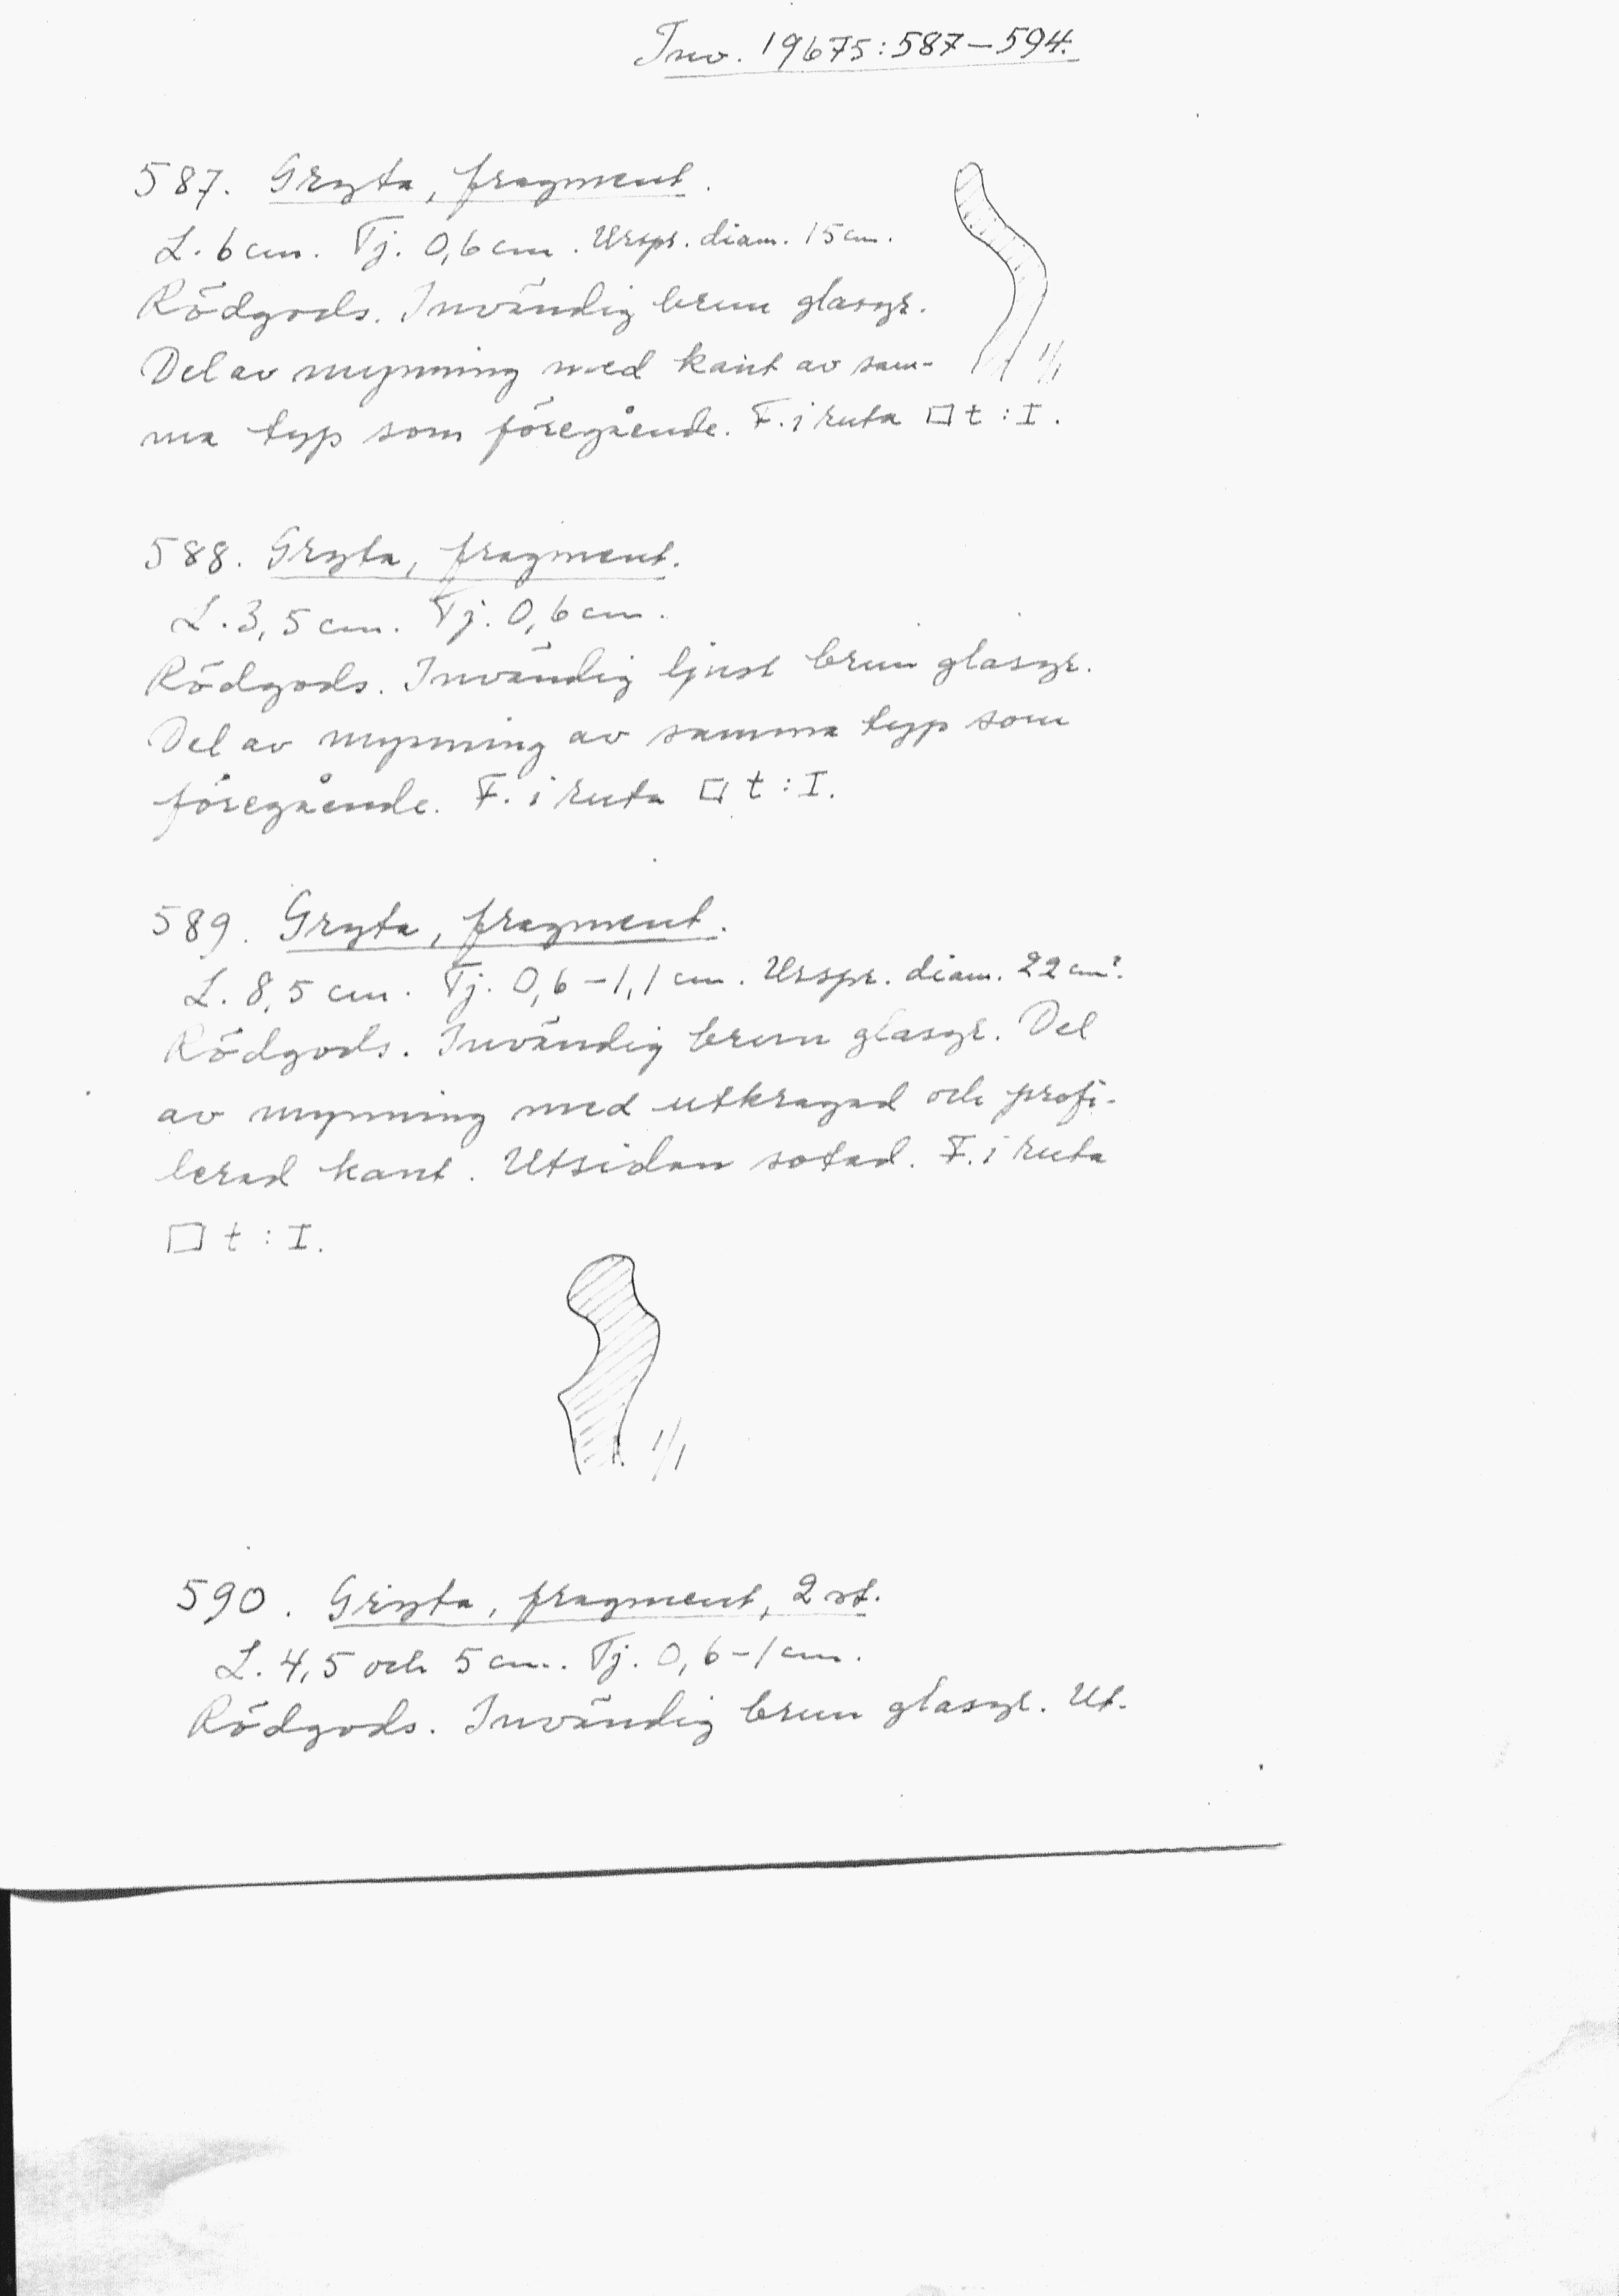 Inv. 19675:587–594.
587. Gryta, fragment.
L. 6 cm. Tj. 0,6 cm. Urspr. diam. 15 cm.
Rödgods. Invändig brun glasyr.
Del av mynning med kant av sam-
1/1
ma typ som föregående. F. i ruta □ t : I.
588. Gryta, fragment.
L. 3,5 cm. Tj. 0,6 cm.
Rödgods. Invändig ljust brun glasyr.
Del av mynning av samma typ som
föregående. F. i ruta □ t : I.
589. Gryta, fragment.
L. 8,5 cm. Tj. 0,6–1,1 cm. Urspr. diam. 22 cm?.
Rödgods. Invändig brun glasyr. Del
av mynning med utkragad och profi-
lerad kant. Utsidan sotad. F. i ruta
□ t : I.
1/1
590. Gryta, fragment, 2 st.
L. 4,5 och 5 cm. Tj. 0,6–1 cm.
Rödgods. Invändig brun glasyr. Ut-